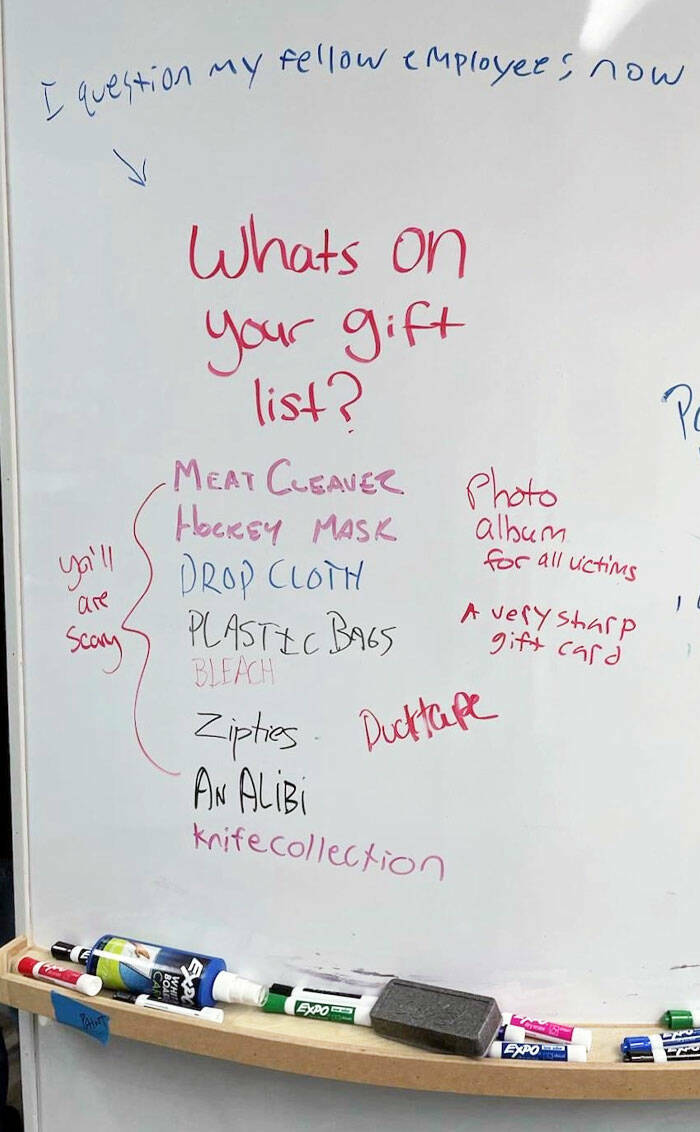 I question my fellow employees now
Whats on
your gift
list?
MEAT CLEAVER
HOCKEY MASK
DROP CLOTH
PLASTIC BAGS
BLEACH
Zipties
AN ALIBI
knife collection
ya'll
are
Scary
Photo
album
for all victims
A very sharp
gift card
Ducktape
EXPO
WHITE
BOARD
EXPO
EXPO